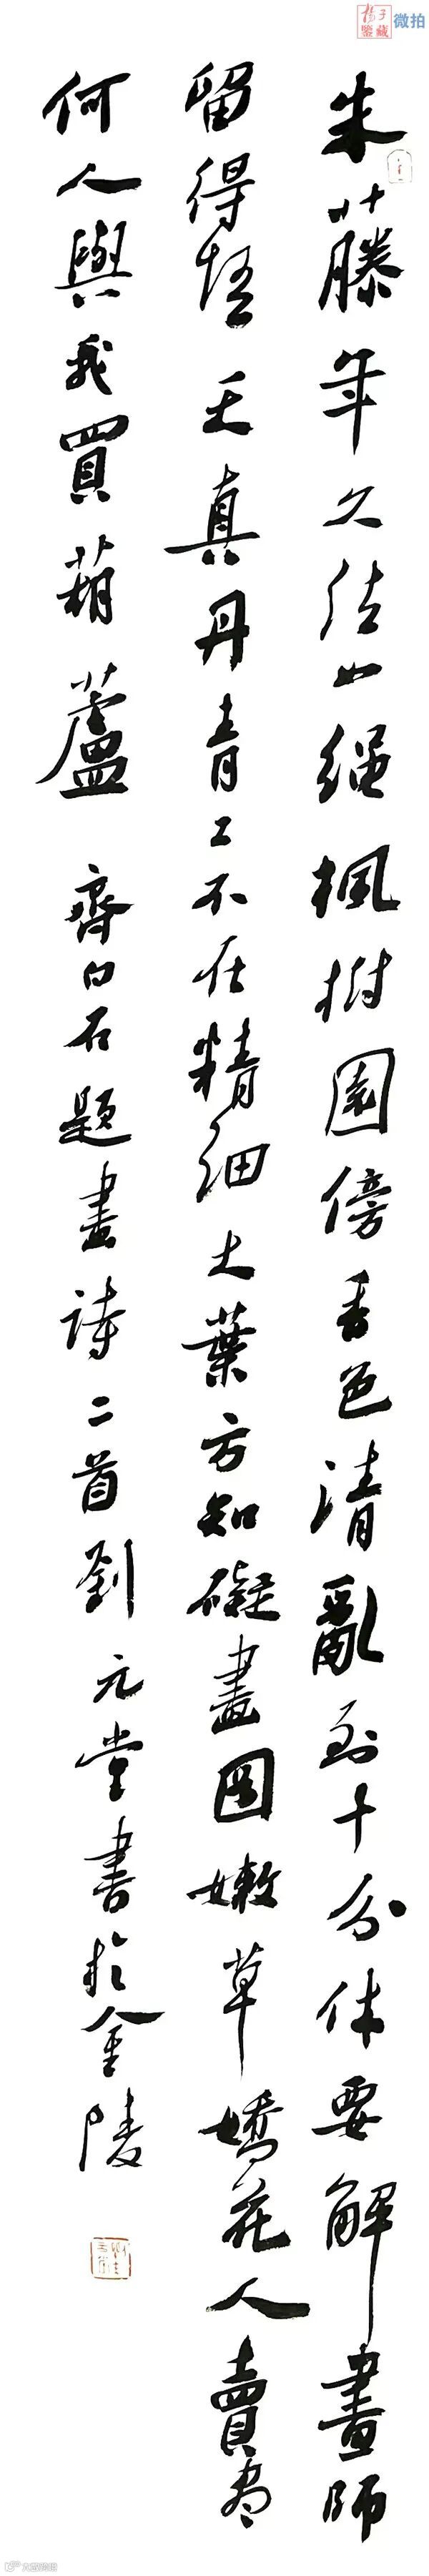 揚子鑒藏 微拍
朱藤年久结如繩楓樹園傍香色清亂到十分休要解畫師
留得悟天真丹青工不在精細大葉方知礙畫圖嫩草嬌花人賣盡
何人與我買葫蘆 齊白石題畫詩二首劉元堂書於金陵